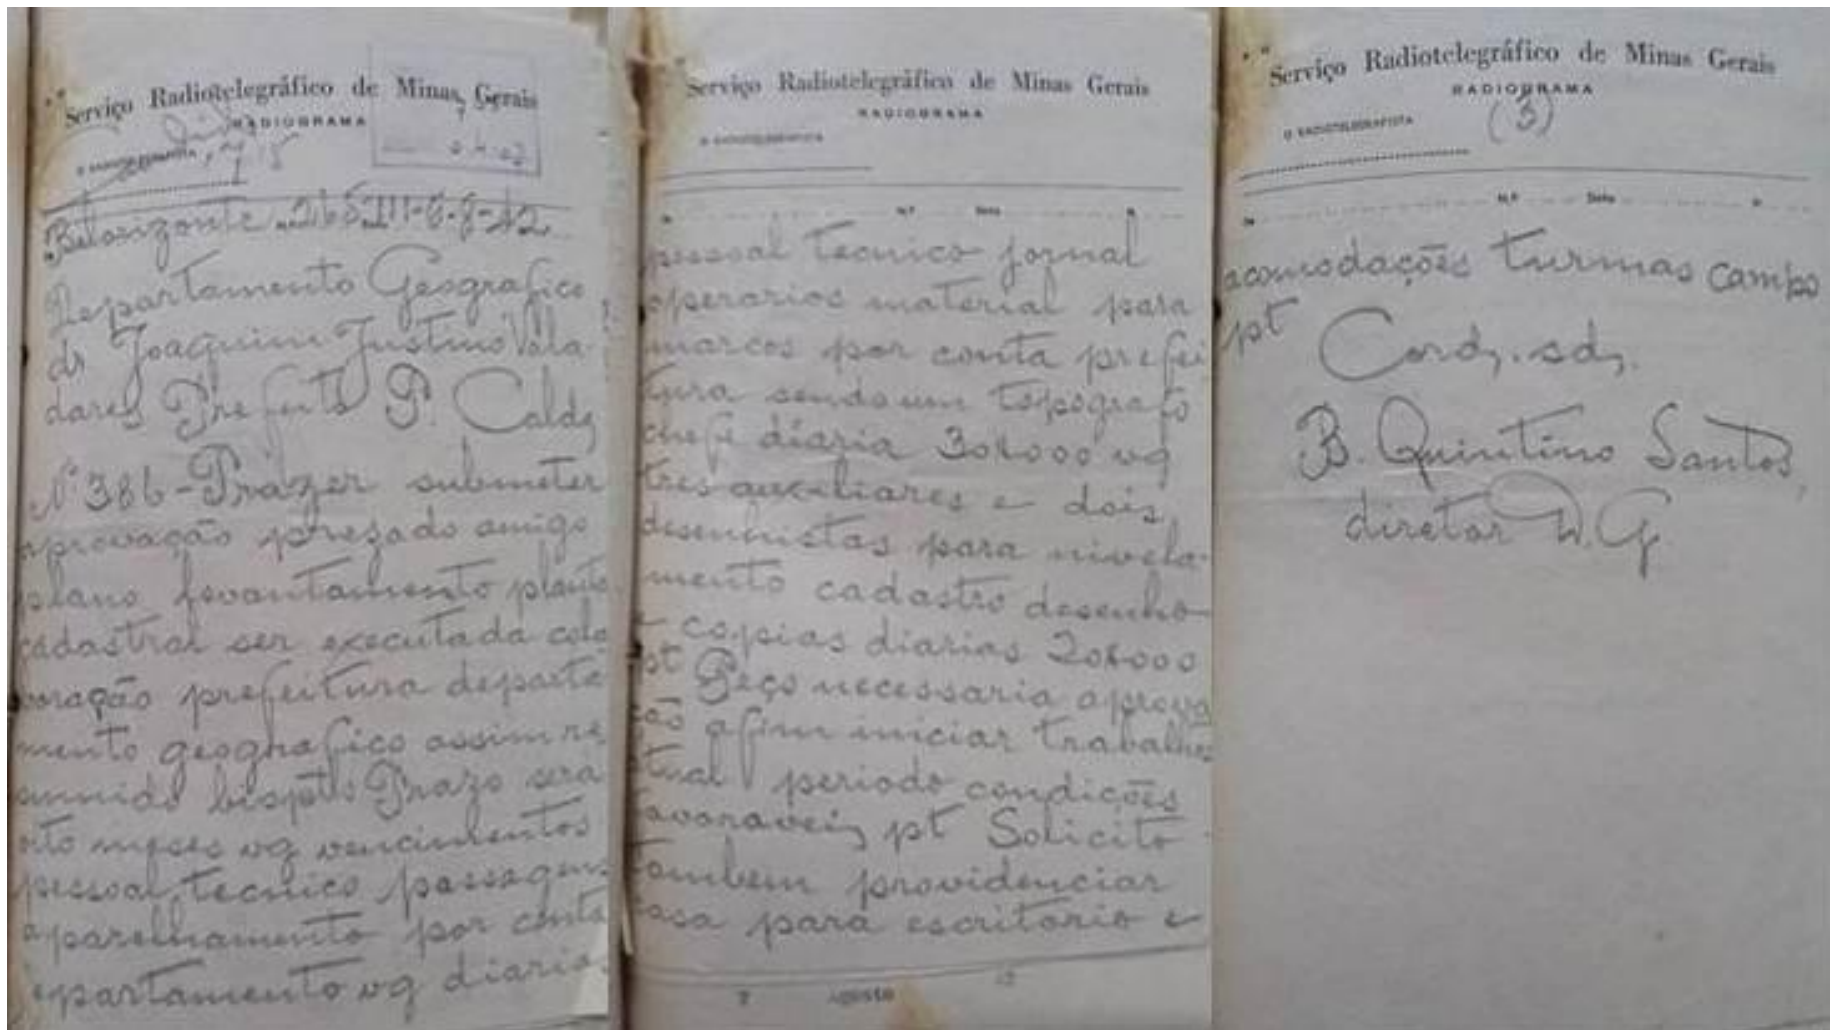 Serviço Radiotelegráfico de Minas Gerais
RADIOGRAMA
O RADIOTELEGRAFISTA
Belorizonte 265 111-6-8-42
Departamento Geografico
dr Joaquim Justino Vala
dares Prefeito P. Calds
Nº 386-Prazer submeter
aprovação prezado amigo
plano levantamento planta
cadastral ser executada cola
boração prefeitura departa
mento geografico assim re
sumido bispts Prazo sera
oito mezes vg vencimentos
pessoal tecnico passagens
aparelhamento por conta
departamento vg diarias
Serviço Radiotelegráfico de Minas Gerais
RADIOGRAMA
O RADIOTELEGRAFISTA
N.º Data
pessoal tecnico jornal
operarios material para
marcos por conta prefei
tura sendo um topografo
chefe diaria 30$000 vg
tres auxiliares e dois
desenhistas para nivela-
mento cadastro desenho
e copias diarias 20$000
pt Peço necessaria aprova
ção afim iniciar trabalhos
atual periodo condições
favoraveis pt Solicito
tambem providenciar
casa para escritorio e
7 Agosto 42
Serviço Radiotelegráfico de Minas Gerais
RADIOGRAMA
(3)
O RADIOTELEGRAFISTA
N.º Data
acomodações turmas campo
pt
Cords. sds.
B. Quintino Santos,
diretor D.G